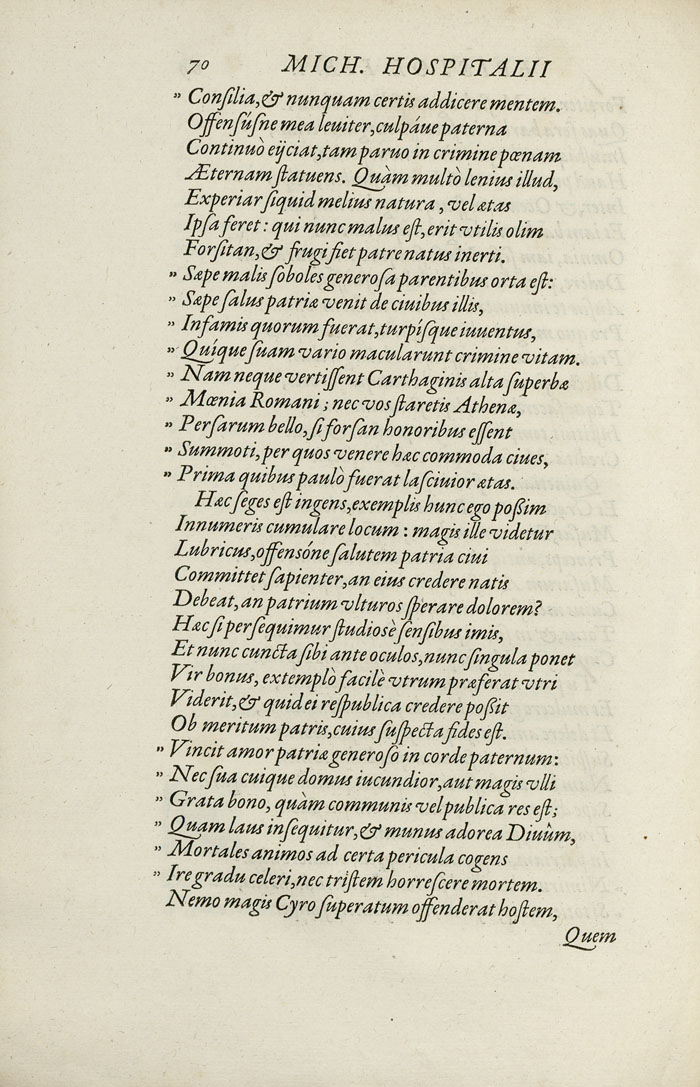 70 MICH. HOSPITALII
" Consilia,& nunquam certis addicere mentem.
Offensúsne mea leuiter,culpáue paterna
Continuò eÿciat,tam paruo in crimine pœnam
Æternam statuens. Quàm multò lenius illud,
Experiar siquid melius natura, vel ætas
Ipsa feret: qui nunc malus est,erit vtilis olim
Forsitan,& frugi fiet patre natus inerti.
" Sæpe malis soboles generosa parentibus orta est:
" Sæpe salus patriæ venit de ciuibus illis,
" Infamis quorum fuerat,turpísque iuuentus,
" Quíque suam vario macularunt crimine vitam.
" Nam neque vertissent Carthaginis alta superbæ
" Mœnia Romani; nec vos staretis Athenæ,
" Persarum bello,si forsan honoribus essent
" Summoti,per quos venere hæc commoda ciues,
" Prima quibus paulò fuerat lasciuior ætas.
Hæc seges est ingens,exemplis hunc ego possim
Innumeris cumulare locum: magis ille videtur
Lubricus,offensóne salutem patria ciui
Committet sapienter,an eius credere natis
Debeat,an patrium vlturos sperare dolorem?
Hæc si persequimur studiosè sensibus imis,
Et nunc cuncta sibi ante oculos,nunc singula ponet
Vir bonus, extemplò facilè vtrum præferat vtri
Viderit,& quid ei respublica credere possit
Ob meritum patris,cuius suspecta fides est.
" Vincit amor patriæ generoso in corde paternum:
" Nec sua cuique domus iucundior,aut magis vlli
" Grata bono, quàm communis vel publica res est;
" Quam laus insequitur,& munus adorea Diuûm,
" Mortales animos ad certa pericula cogens
" Ire gradu celeri,nec tristem horrescere mortem.
Nemo magis Cyro superatum offenderat hostem,
Quem